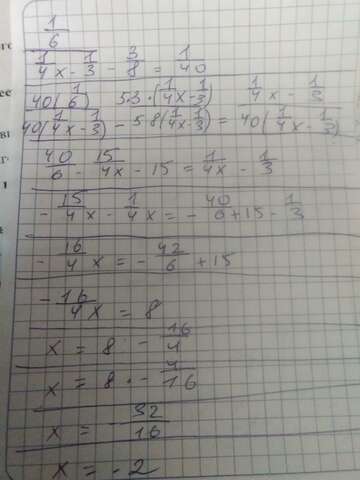 1/6
1/4 x - 1/3 - 3/8 = 1/40
40(1/6) 5·3·(1/4 x - 1/3) 1/4 x - 1/3
40(1/4 x - 1/3) - 5·8(1/4 x - 1/3) = 40(1/4 x - 1/3)
40/6 - 15/4x - 15 = 1/4 x - 1/3
- 15/4 x - 1/4 x = - 40/6 + 15 - 1/3
- 16/4 x = - 42/6 + 15
- 16/4 x = 8
x = 8 - 16/4
x = 8 · - 4/16
x = - 32/16
x = - 2